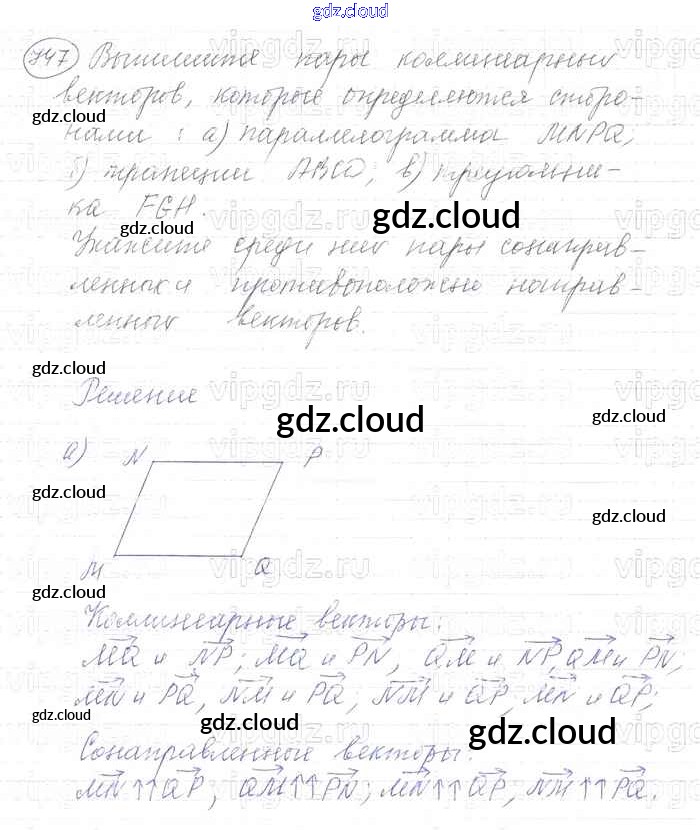 gdz.cloud
747 Выпишите пары коллинеарных
векторов, которые определяются сторо-
gdz.cloud
нами: а) параллелограмма MNPQ;
б) трапеции ABCD; в) треугольни-
ка FGH.
gdz.cloud
gdz.cloud
Укажите среди них пары сонаправ-
ленных и противоположно направ-
ленных векторов.
gdz.cloud
Решение
gdz.cloud
gdz.cloud
а) N P
gdz.cloud
gdz.cloud
M Q
gdz.cloud
Коллинеарные векторы:
MQ и NP; MQ и PN, QM и NP, QM и PN;
MN и PQ, NM и PQ; NM и QP; MN и QP;
gdz.cloud
gdz.cloud
gdz.cloud
Сонаправленные векторы:
MN↑↑QP; QM↑↑PN; MN↑↑QP; NM↑↑PQ.